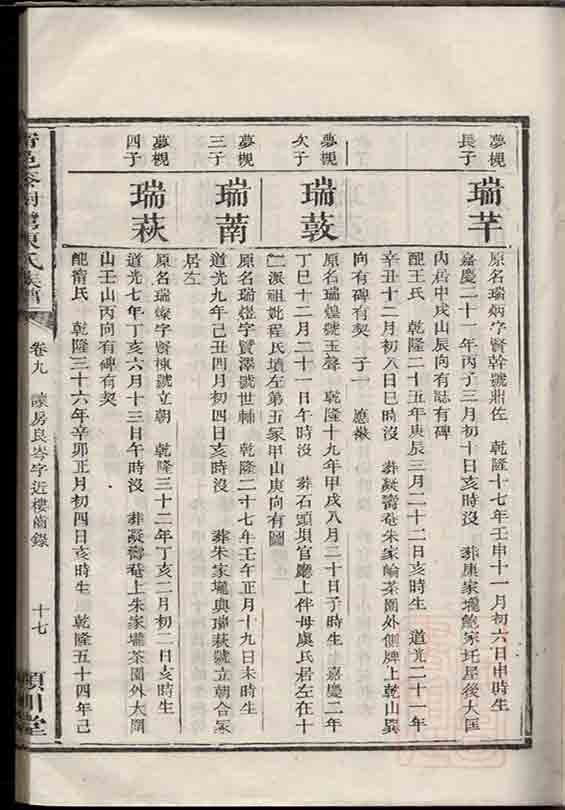 夢槻
長子
瑞芊
原名瑞炳字賢幹號鼎佐 乾隆十七年壬申十一月初六日申時生
嘉慶二十一年丙子三月初十日亥時沒 葬康家壠鮑家圫屋後大匡
內居中戌山辰向有誌有碑
配王氏 乾隆二十五年庚辰三月二十二日亥時生 道光二十一年
辛丑十二月初八日巳時沒 葬凝壽菴朱家崙茶園外側牌上乾山巽
向有碑有契 子一 應
夢槻
次子
瑞菼
原名瑞煌號玉聲 乾隆十九年甲戌八月二十日子時生 嘉慶二年
丁巳十二月二十一日午時沒 葬石頭塅官廳上伴母虞氏居左在十
二派祖妣程氏墳左第五冢甲山庚向有圖
夢槻
三子
瑞萳
原名瑞煜字賢澤號世輔 乾隆二十七年壬午正月十九日未時生
道光九年己丑四月初四日亥時沒 葬朱家壠與瑞萩號立朝合冢
居左
夢槻
四子
瑞萩
原名瑞燦字賢棟號立朝 乾隆三十二年丁亥二月初二日亥時生
道光七年丁亥六月十三日午時沒 葬凝壽菴上朱家壠茶園外大圍
山壬山丙向有碑有契
配甯氏 乾隆三十六年辛卯正月初四日亥時生 乾隆五十四年己
陳氏族譜
卷九
讓房良岑字近樓齒錄
十七
潁川堂